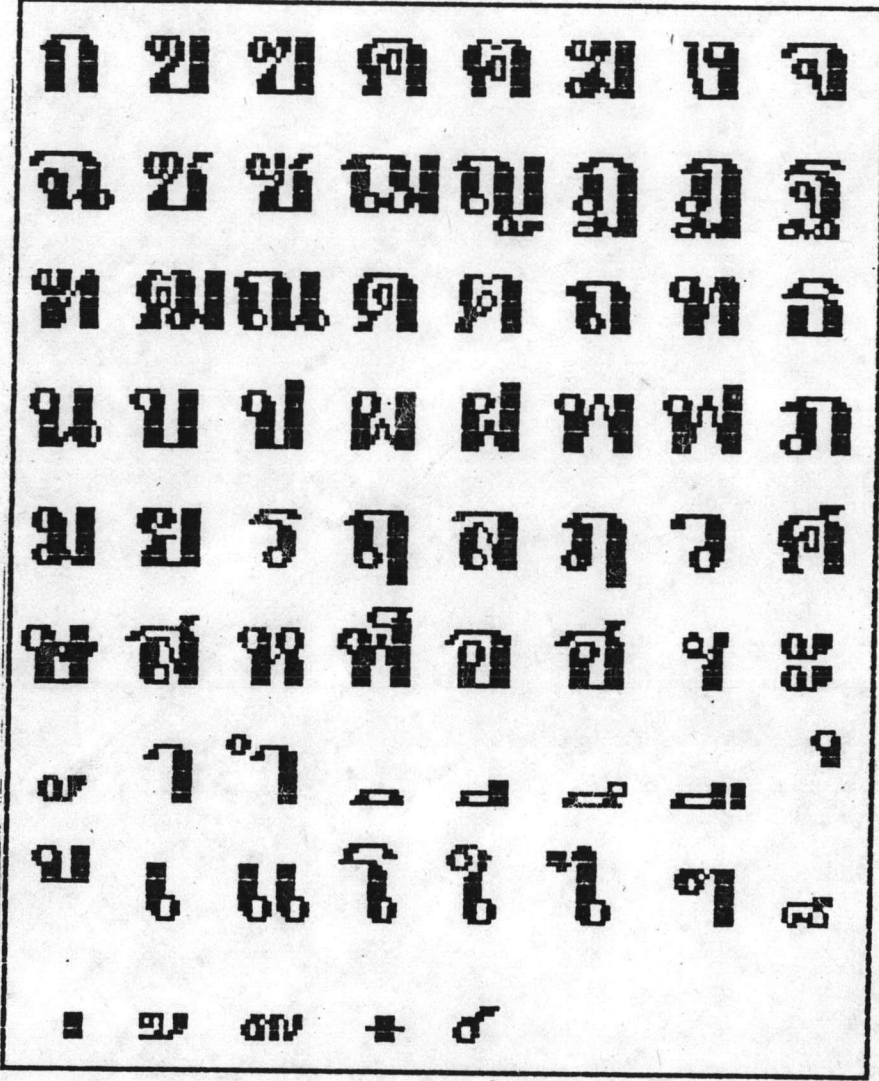 ก ข ฃ ค ฅ ฆ ง จ
ฉ ช ซ ฌ ญ ฎ ฏ ฐ
ฑ ฒ ณ ด ต ถ ท ธ
น บ ป ผ ฝ พ ฟ ภ
ม ย ร ฤ ล ฦ ว ศ
ษ ส ห ฬ อ ฮ ฯ ะ
ั า ำ ิ ี ึ ื ุ
ู เ แ โ ใ ไ ๆ ็
่ ้ ๊ ๋ ์